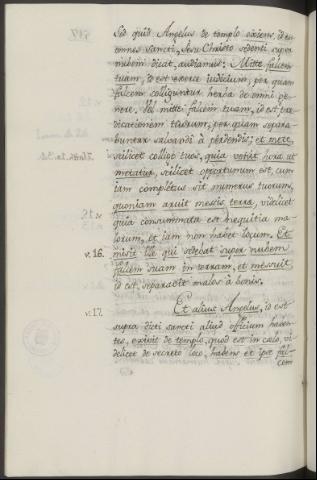 Sed quid Angelus de templo exiens, id est
omnes sancti, Jesu Christo sedenti super
nubem dicat, audiamus: Mitte falcem
tuam, id est exerce judicium, per quam
falcem colliguntur herbæ de omni ge-
nere. Vel mitte falcem tuam, id est præ-
dicationem tuorum, per quam separa-
buntur salvandi à perdendis; et mete,
scilicet collige tuos, quia venit hora ut
metatur, scilicet opportunum est, cum
jam completus sit numerus tuorum,
quoniam aruit messis terræ, videlicet
v. 15.
quia consummata est nequitia ma-
lorum, et jam non habet locum. Et
v. 16. misit ille qui sedebat super nubem
falcem suam in terram, et messuit,
id est, separabit malos à bonis.
v. 17. Et alius Angelus, id est
supra dicti sancti aliud officium haben-
tes, exivit de templo, quod est in cœlo, vi-
delicet de secreto loco, habens et ipse fal-
cem